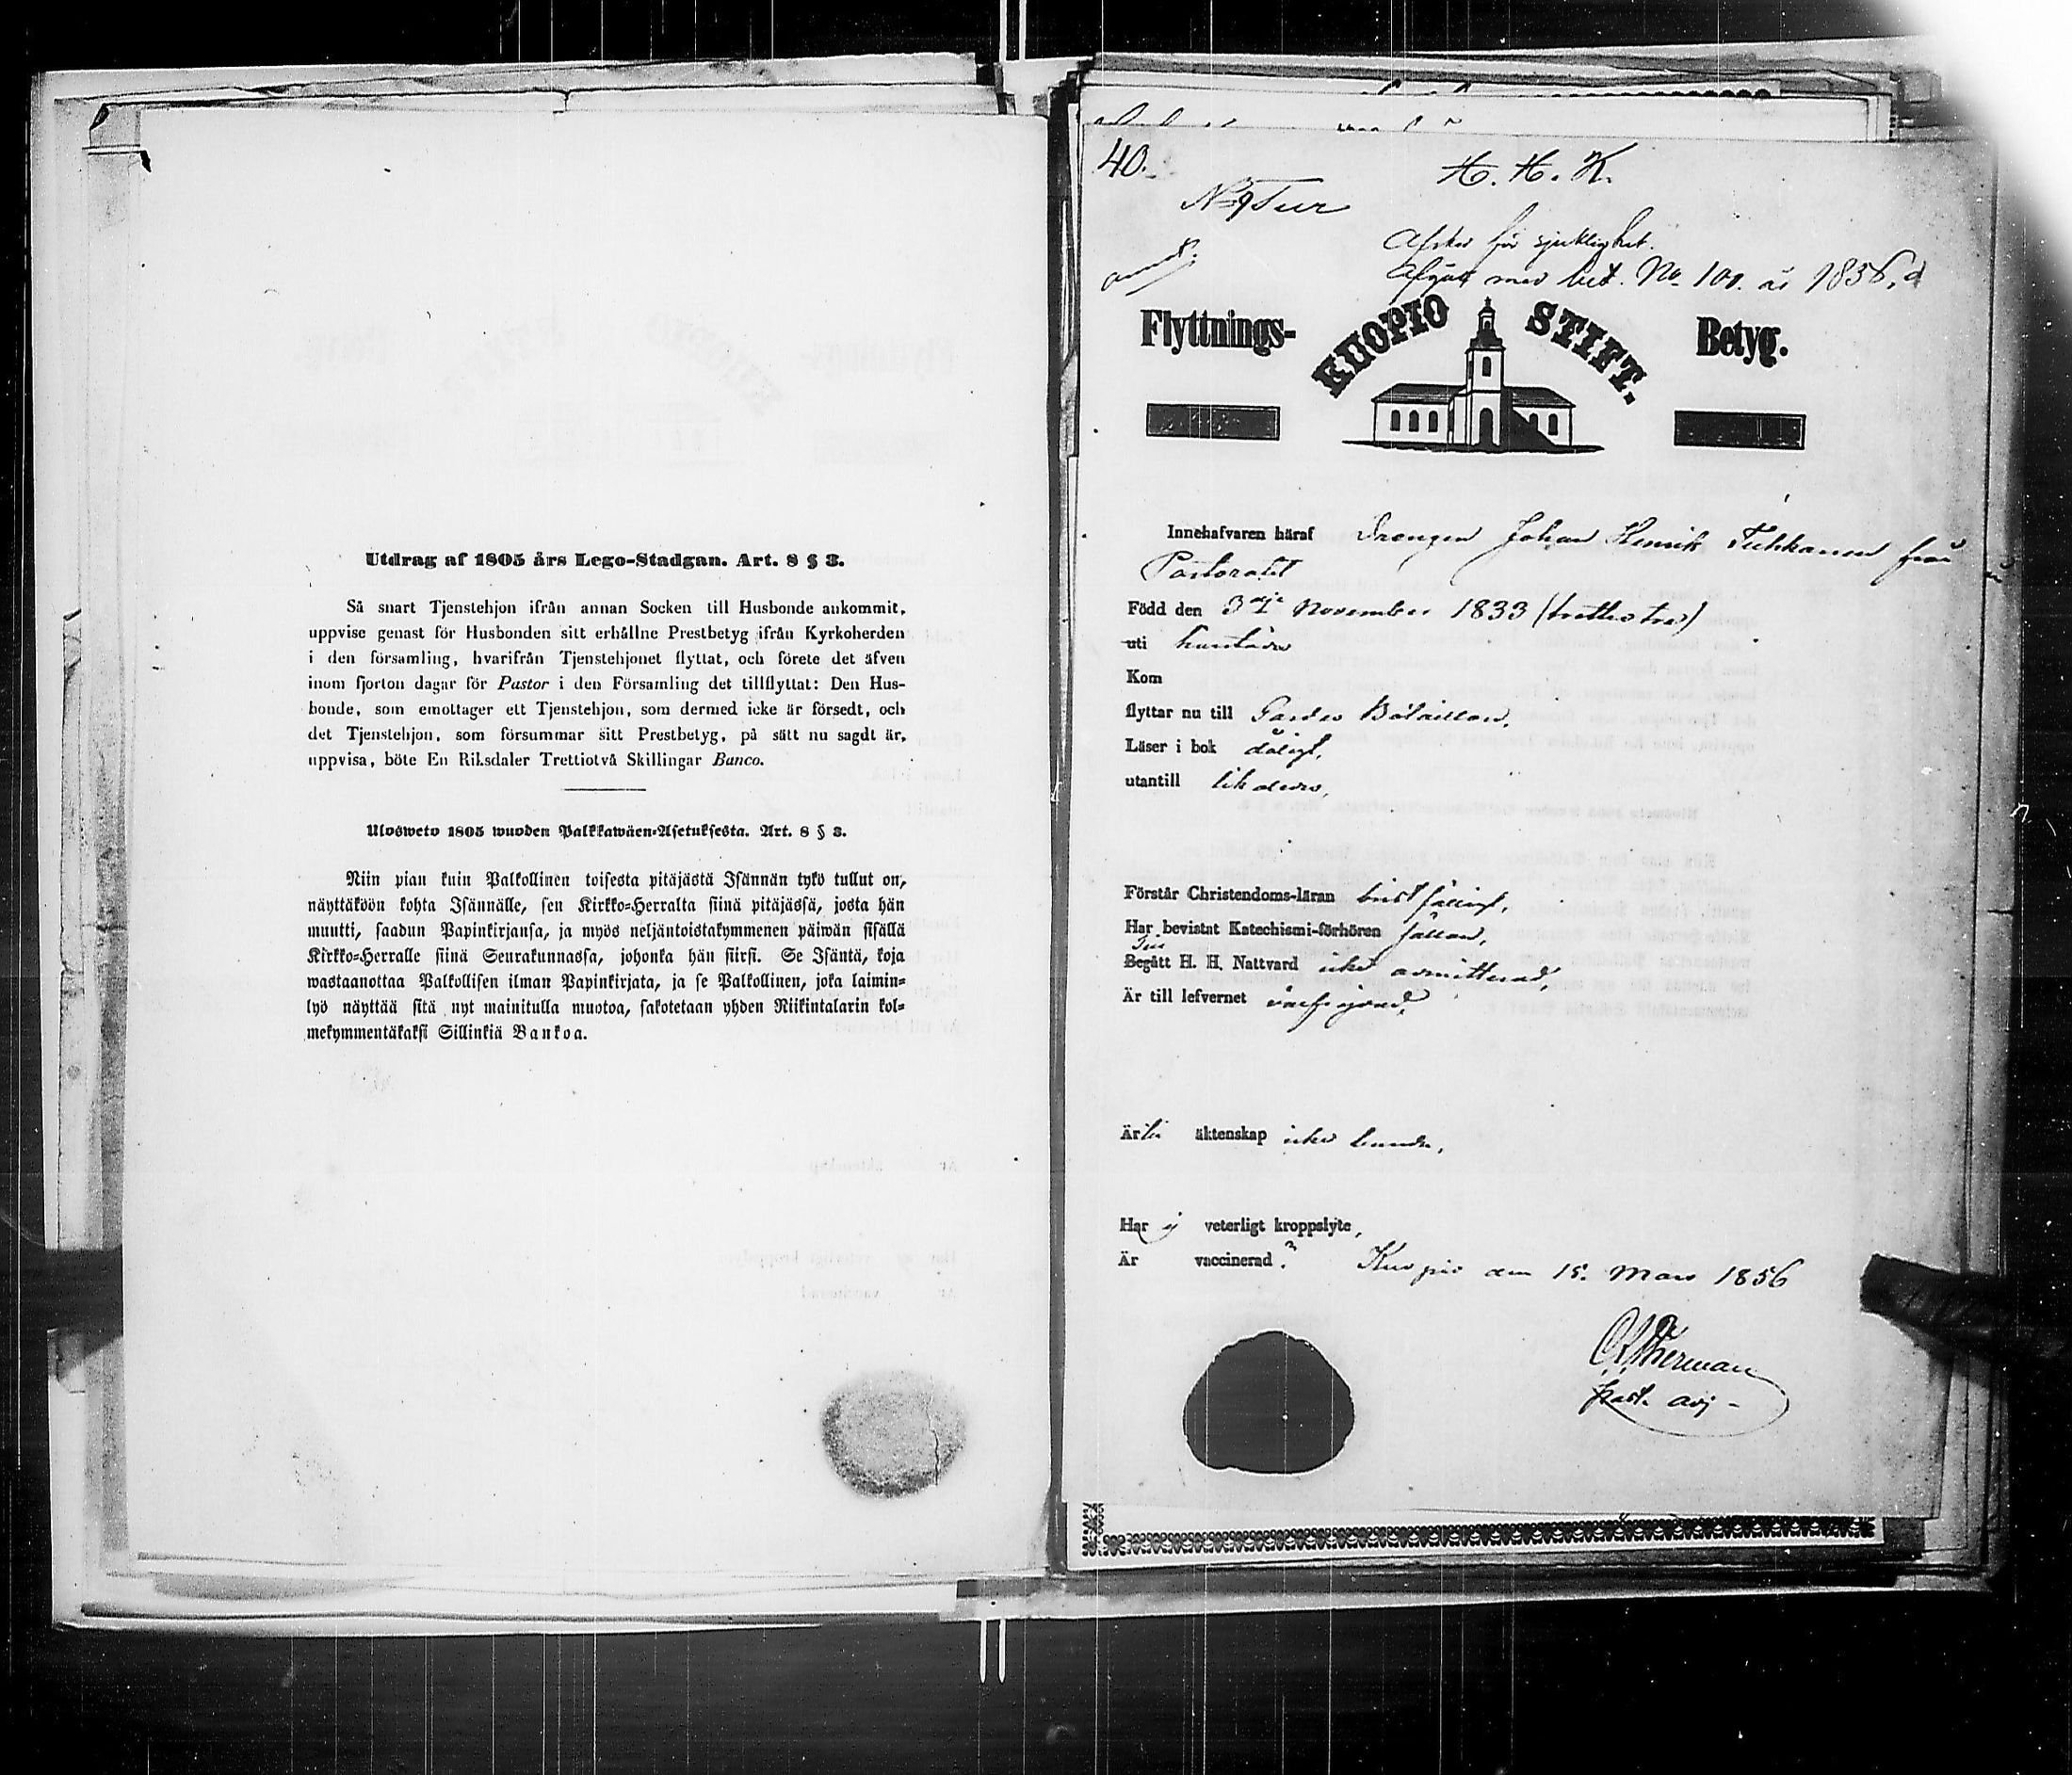 Utdrag af 1805 års Lego-Stadgan. Art. 8 § 3.
Så snart Tjenstehjon ifrån annan Socken till Husbonde ankommit,
uppvise genast för Husbonden sitt erhållne Prestbetyg ifrån Kyrkoherden
i den församling, hvarifrån Tjenstehjonet flyttat, och förete det äfven
inom fjorton dagar för Pastor i den Församling det tillflyttat: Den Hus-
bonde, som emottager ett Tjenstehjon, som dermed icke är försedt, och
det Tjenstehjon, som försummar sitt Prestbetyg, på sätt nu sagdt är,
uppvisa, böte En Riksdaler Trettiotvå Skillingar Banco.
Ulosweto 1805 wuoden Palkkawäen-Asetuksesta. Art. 8 § 3.
Niin pian kuin Palkollinen toisesta pitäjästä Isännän tykö tullut on,
näyttäköön kohta Isännälle, sen Kirkko-Herralta siinä pitäjässä, josta hän
muutti, saadun Papinkirjansa, ja myös neljäntoistakymmenen päiwän sisällä
Kirkko-Herralle siinä Seurakunnassa, johonka hän siirsi. Se Isäntä, koja
wastaanottaa Palkollisen ilman Papinkirjata, ja se Palkollinen, joka laimin-
lyö näyttää sitä nyt mainitulla muotoa, sakotetaan yhden Riikintalarin kol-
mekymmentäkaksi Sillinkiä Bankoa.
40.
H. H. K.
Afsked för sjuklighet.
med bet. No. 100. år 1856.
Flyttnings- KUOPIO STIFT. Betyg.
Innehafvaren häraf Drengen Johan Henrik Tukkanen från
Pastoratet
Född den 3dje November 1833 (trettiotre)
uti
Kom
flyttar nu till Gardes Bataillon.
Läser i bok dåligt,
utantill likaledes,
Förstår Christendoms-läran bristfälligt,
Har bevistat Katechismi-förhören sällan,
Begått H. H. Nattvard icke admitterad,
Är till lefvernet oberygtad,
Är till äktenskap icke bunden,
Har ej veterligt kroppslyte,
Är vaccinerad? Kuopio den 15. Mars 1856
past. adj